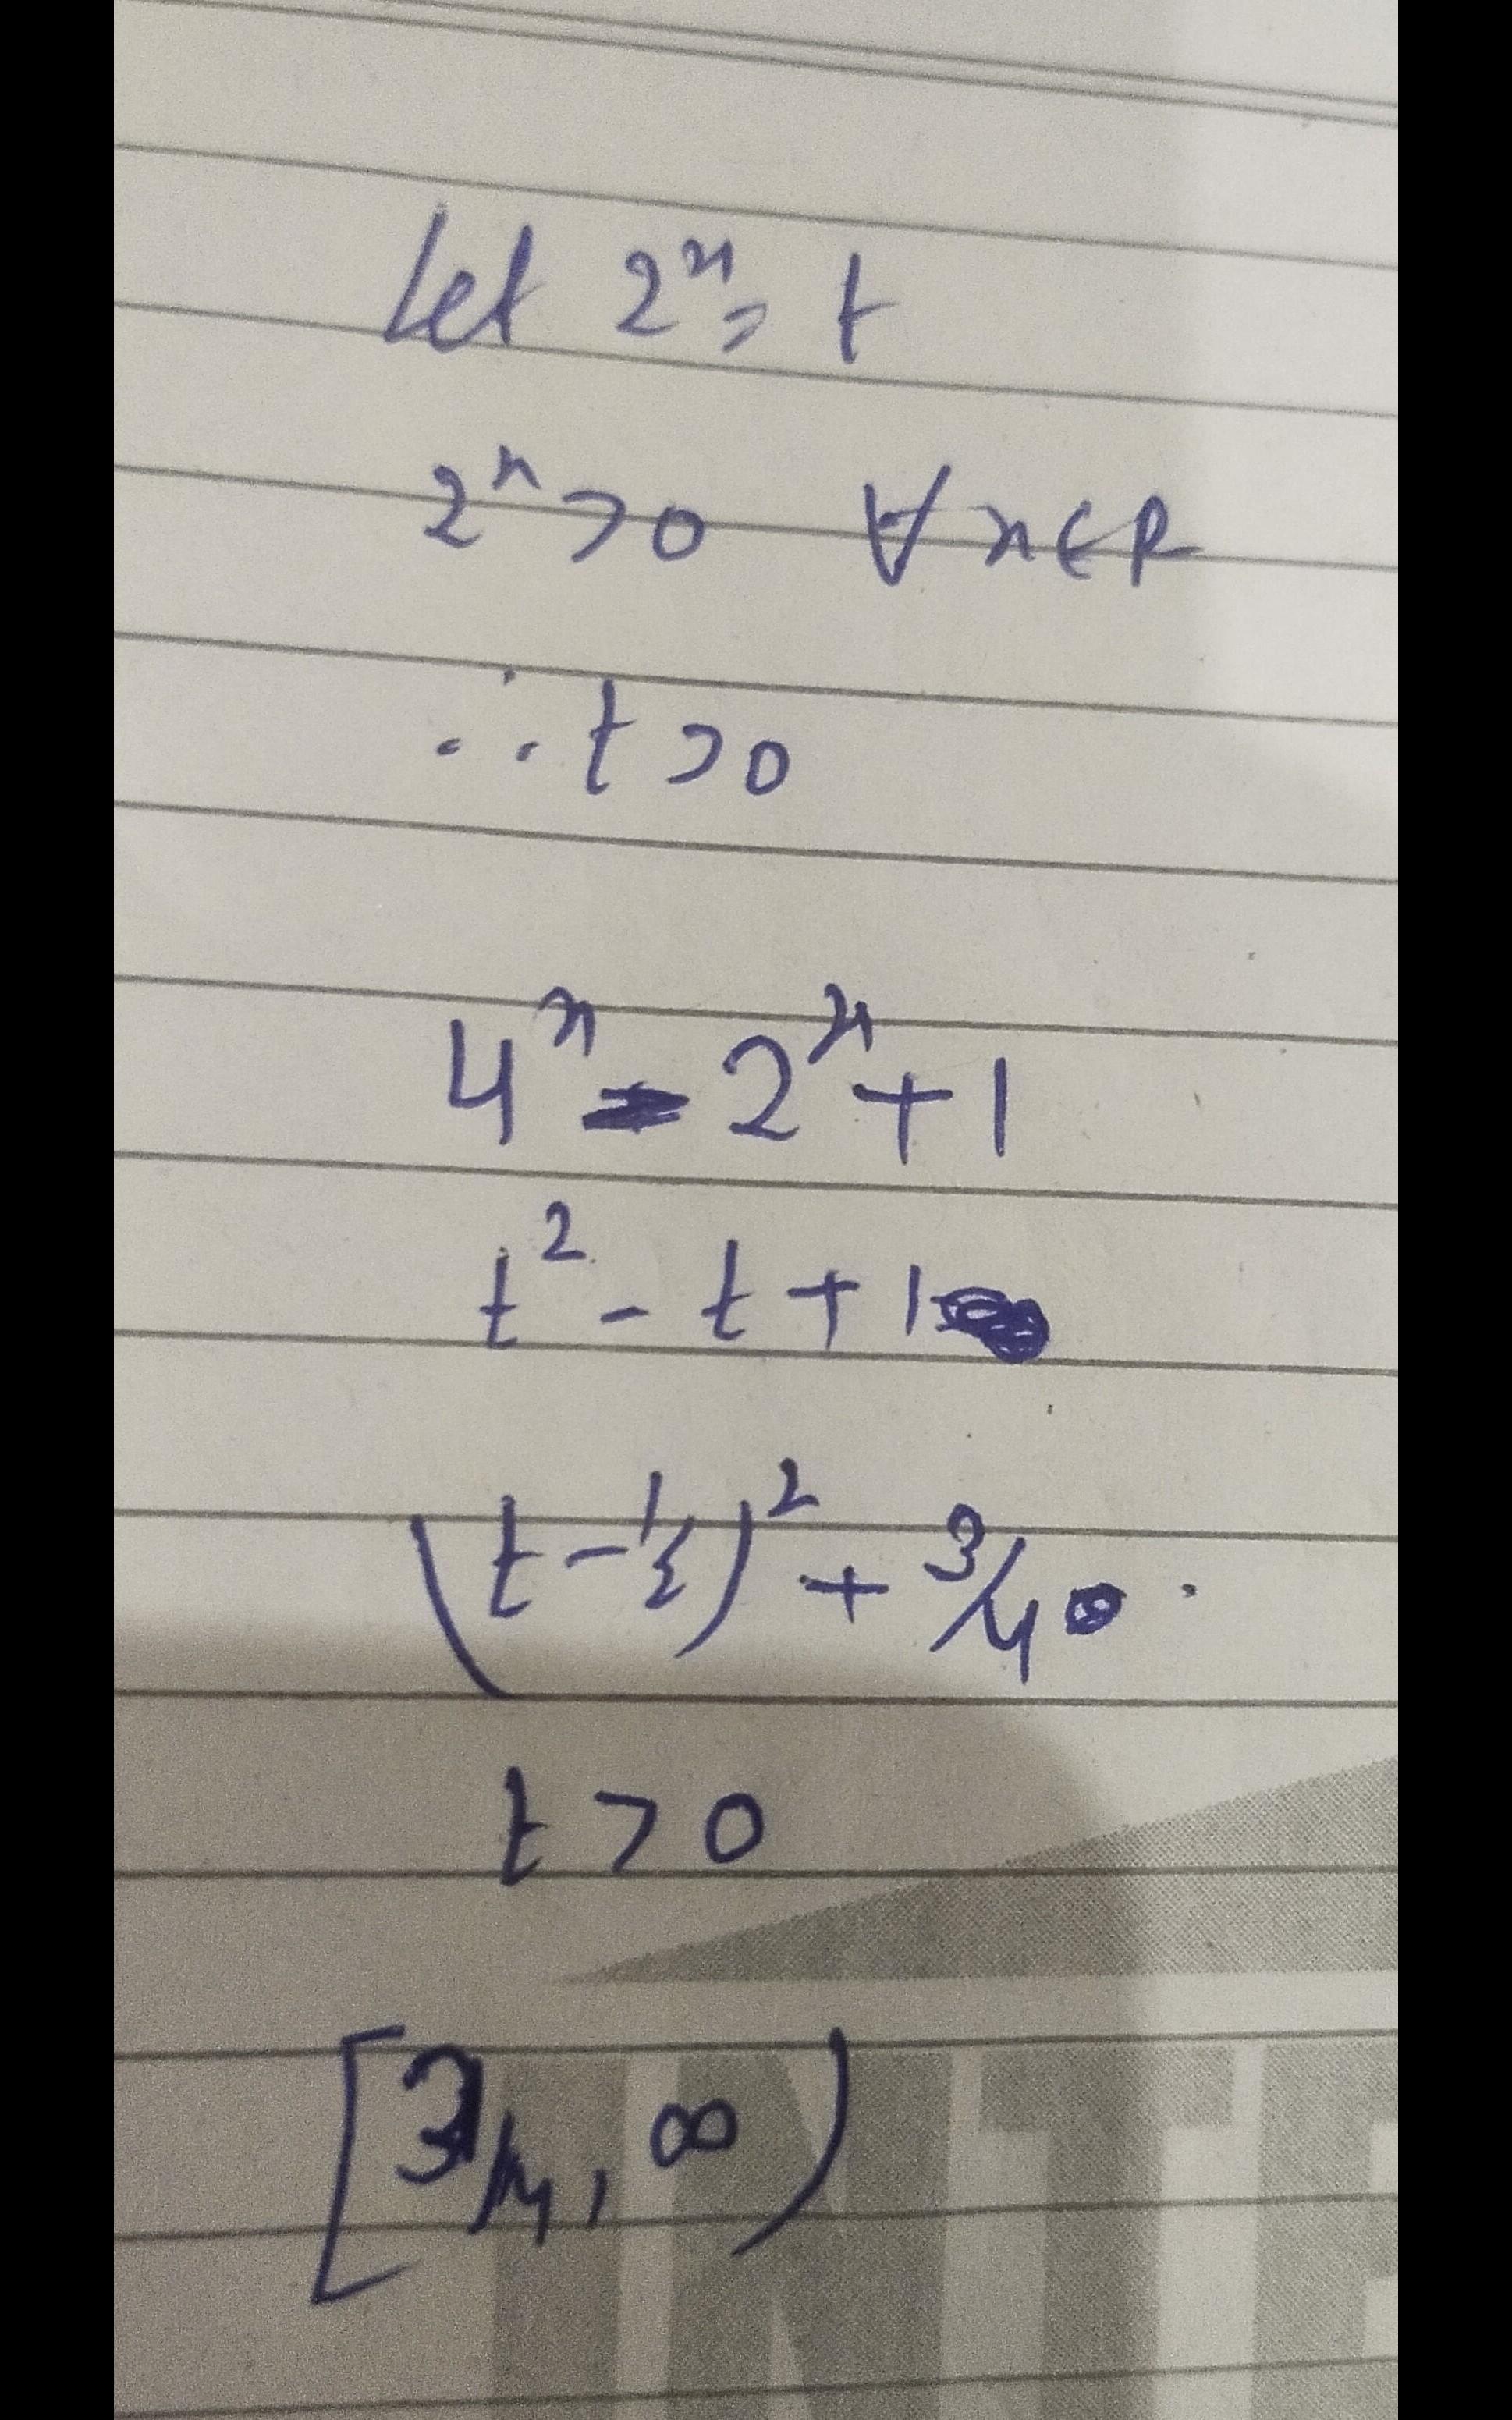 Let 2^x = t
2^x > 0 ∀ x ∈ R
∴ t > 0
4^x - 2^x + 1
t^2 - t + 1
(t - 1/2)^2 + 3/4
t > 0
[3/4, ∞)